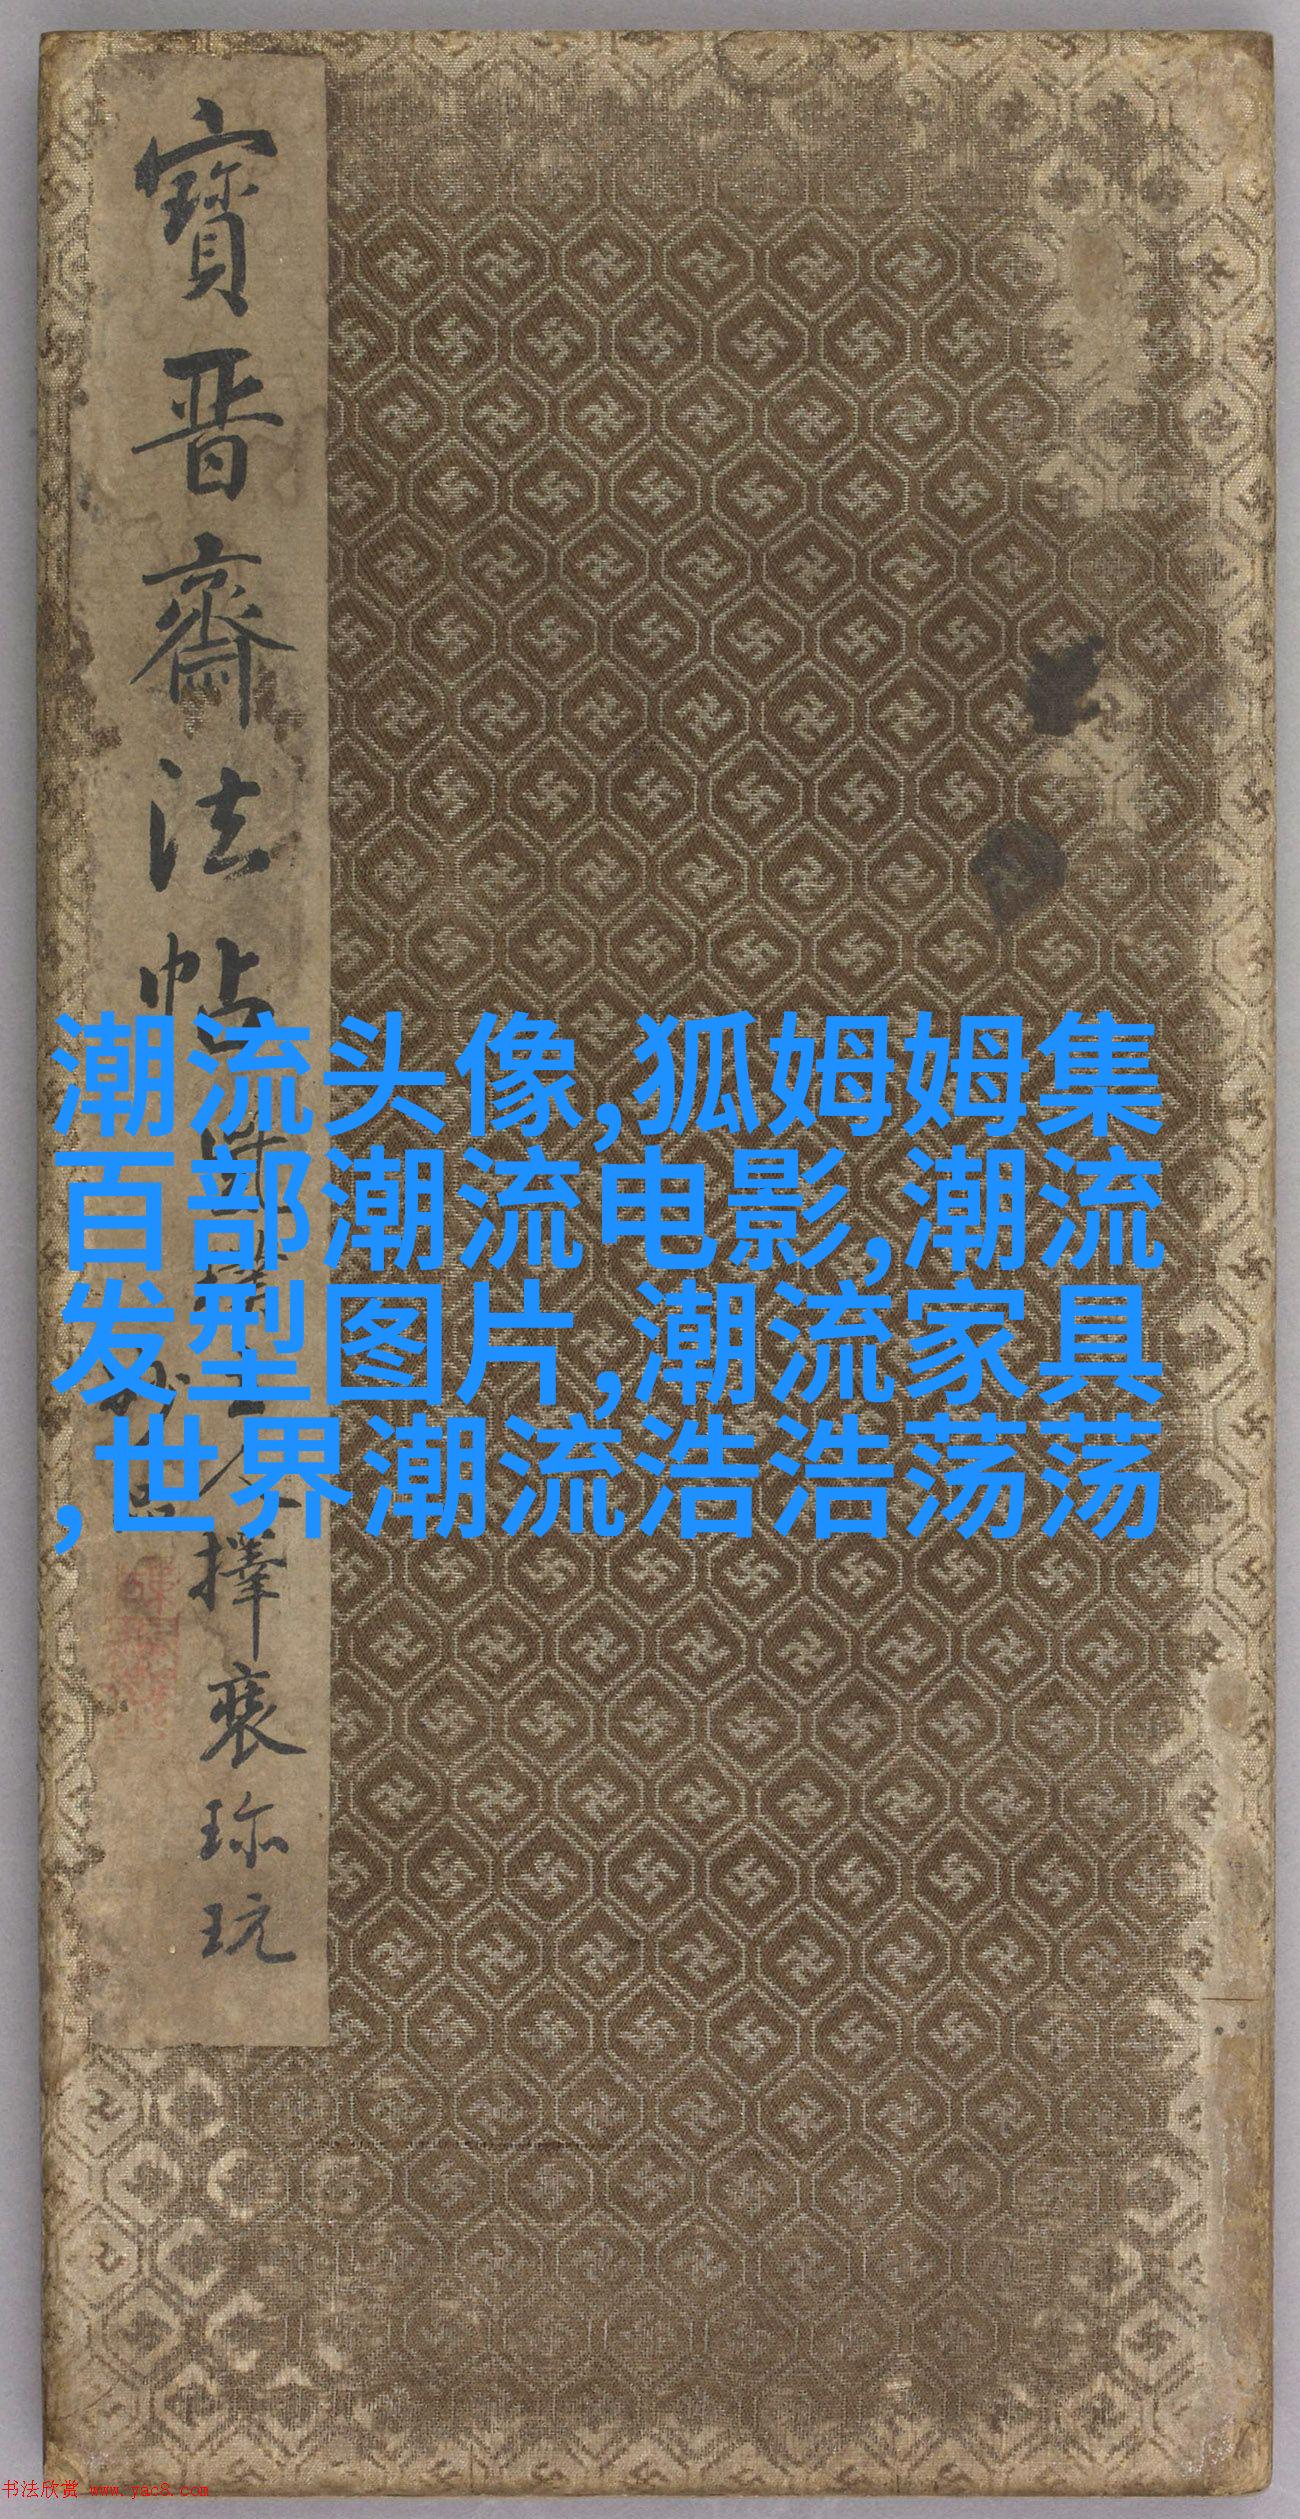 寶晉齋法帖
擇裘珎玩
潮流头像,狐姆姆集
百部潮流电影,潮流
发型图片,潮流家具
,世界潮流浩浩荡荡
书法欣赏 www.yac8.com